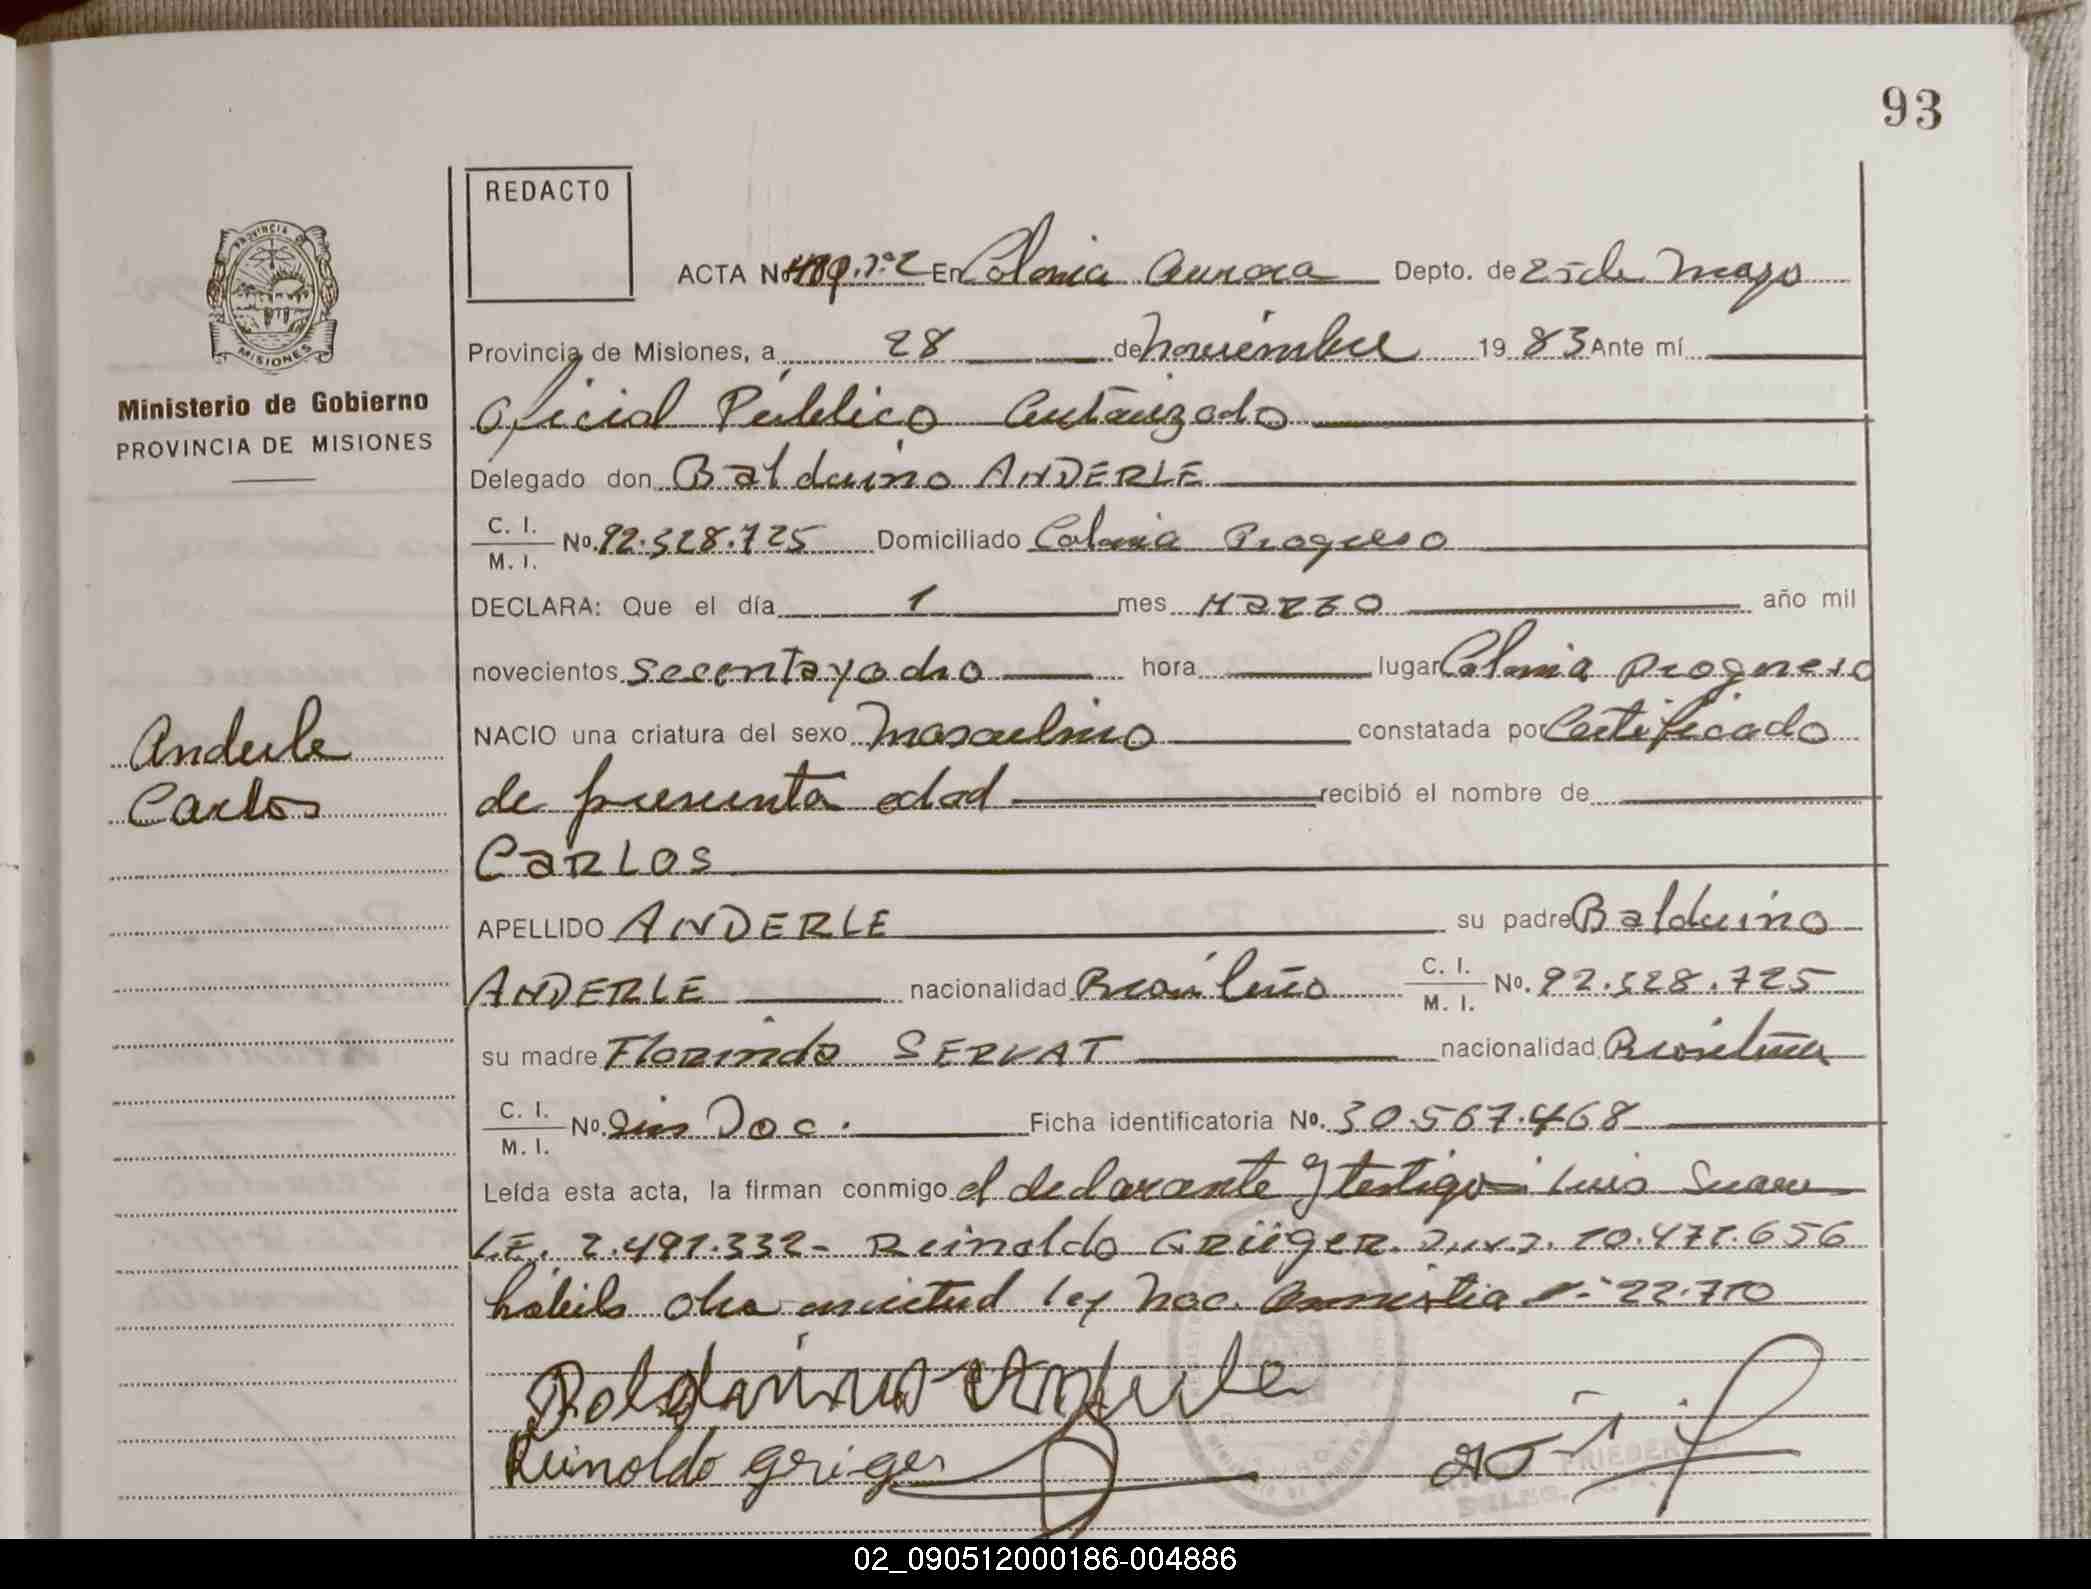 93
REDACTO
PROVINCIA DE
MISIONES
Ministerio de Gobierno
PROVINCIA DE MISIONES
ACTA No En Colonia Aurora Depto. de 25 de Mayo
Provincia de Misiones, a 28 de noviembre 1983 Ante mí
Oficial Público Autorizado
Delegado don Balduino ANDERLE
C. I.
M. I. No. 92.528.725 Domiciliado Colonia Progreso
DECLARA: Que el día 1 mes Marzo año mil
novecientos secentayocho hora lugar Colonia Progreso
NACIO una criatura del sexo Masculino constatada por Certificado
de presunta edad recibió el nombre de
CARLOS
APELLIDO ANDERLE su padre Balduino
ANDERLE nacionalidad Brasileño C. I. M. I. No. 92.528.725
su madre Florinda SERVAT nacionalidad Brasileña
C. I.
M. I. No. Sin Doc. Ficha identificatoria No. 30.567.468
Leída esta acta, la firman conmigo el declarante y testigos Luis
L.E. 2.491.332- Reinoldo GRÜGER. 10.471.656
hábiles ley Nac. Amnistia 22.710
Balduino Anderle
Reinoldo Griger
Anderle
Carlos
02_090512000186-004886